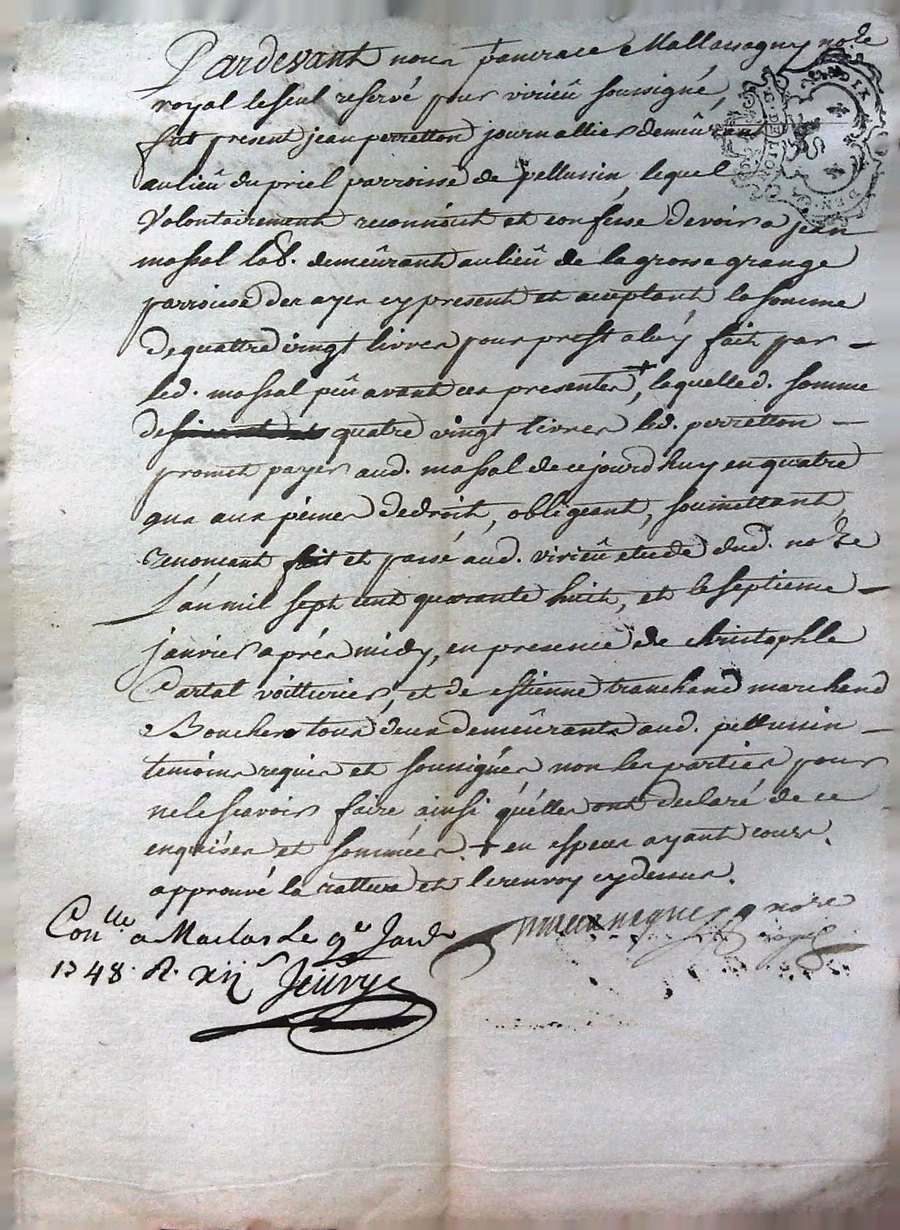 Pardevant nous pancrace Mallassagny no.re
royal le seul reservé pour virieû soussigné,
fut present jean perretton journallier demeûrant
au lieû du priel parroisse de pellussin, lequel
Volontairement reconnoit et confesse devoir a jean
massal lab. demeûrant au lieû de la grosse grange
parroisse des ayes cy present et aceptant la somme
de quattre vingt livres pour prest a luy fait par
led. massal peû avant ces presentes +, laquelle d. somme
de quatre vingt livres led. perretton
promet payer aud. massal de ce jourd'huy en quatre
aux peines de droit, obligeant, soumettant,
renoncant fait et passé aud. virieû etude dud. no.re
L'an mil sept cent quarante huit, et le septieme
janvier aprés midy, en presence de christophle
Cartal voitturier, et de estienne tranchand marchand
Boucher tous deux demeûrants aud. pellussin
temoins requis et soussignés non les parties pour
ne le scavoir faire ainsi qu'elles ont declaré de ce
enquises et sommées. + en espece ayant cours.
approuvé la rature et le renvoy cy dessus.
no.re
royal
Con.lle a Maclas Le 9e Janv.r
1748 R. xii s Jeûrye